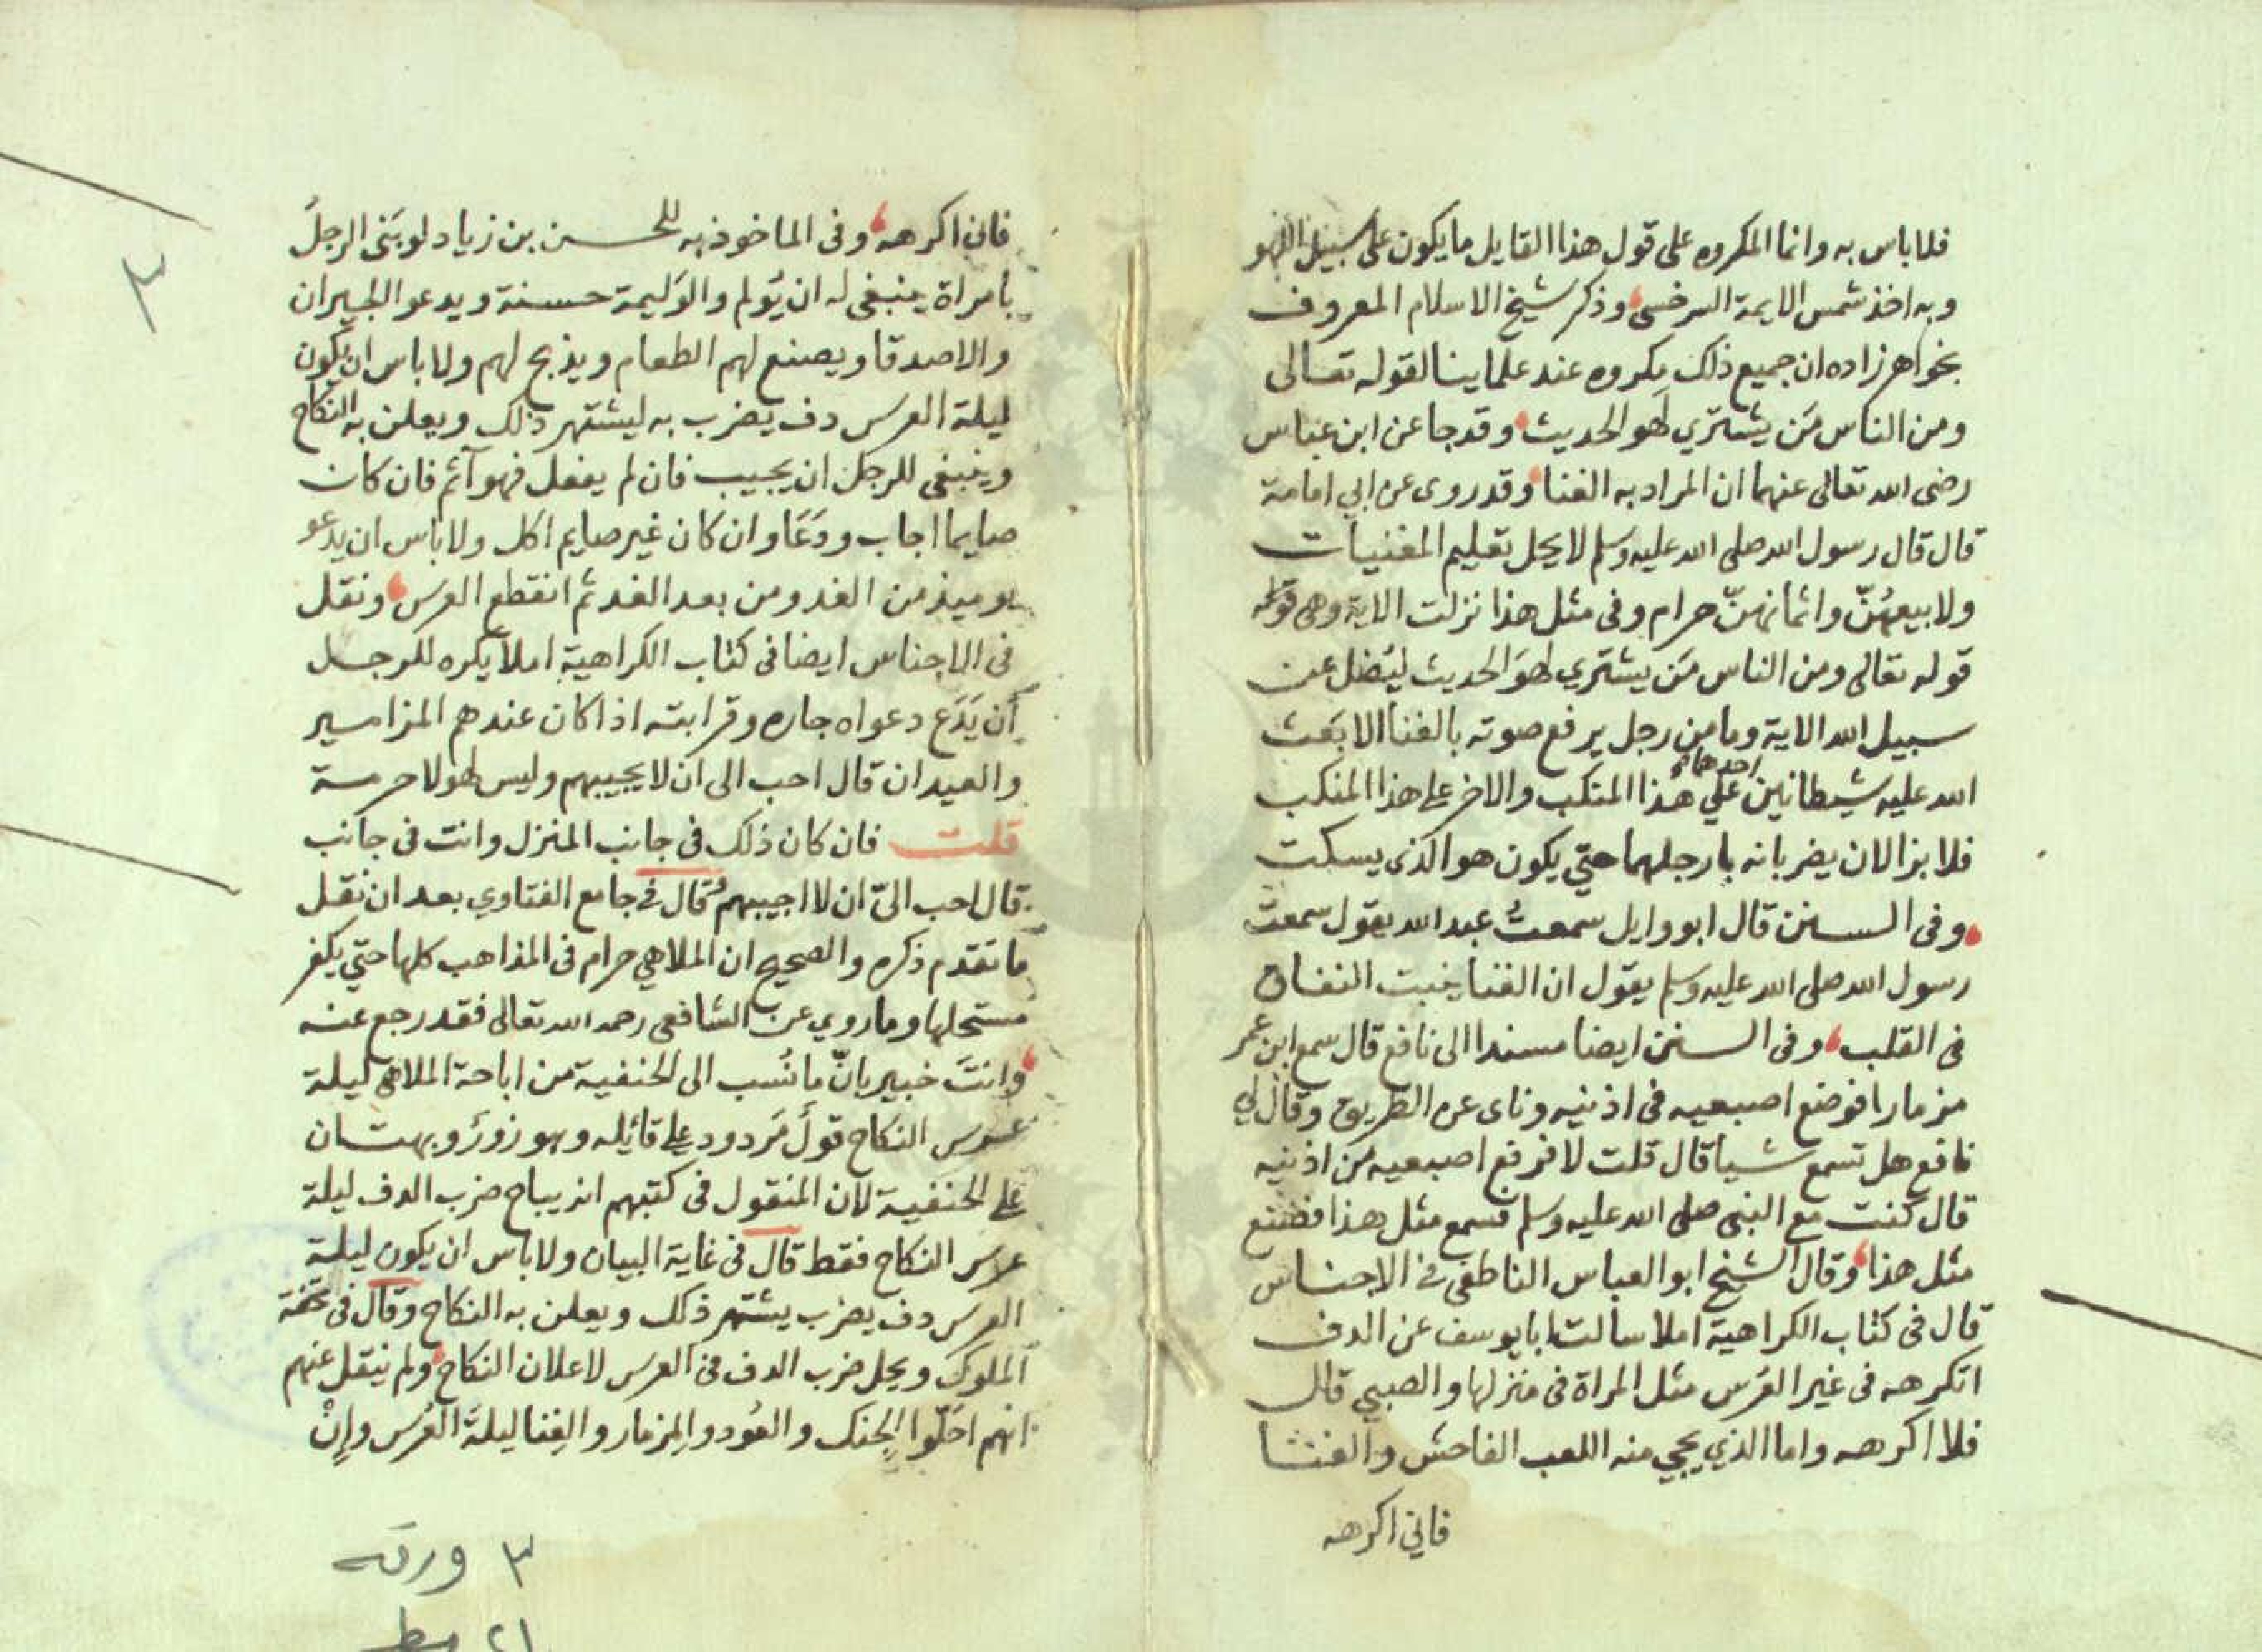 فلا باس به وانما المكروه على قول هذا القايل ما يكون على سبيل اللهو
وبه اخذ شمس الايمة السرخسى وذكر شيخ الاسلام المعروف
بخواهر زاده ان جميع ذلك مكروه عند علماينا لقوله تعالى
ومن الناس مَن يشتري لهو الحديث وقد جا عن ابن عباس
رضى الله تعالى عنهما ان المراد به الغنا وقد روى عن ابي امامة
قال قال رسول الله صلى الله عليه وسلم لا يحل تعليم المغنيات
ولا بيعهُنّ واثمانهنّ حرام وفى مثل هذا نزلت الاية وهى قوله
قوله تعالى ومن الناس مَن يشتري لهوَ الحديث ليَضل عن
سبيل الله الاية وما من رجل يرفع صوته بالغنا الا بَعث
الله عليه شيطانين احدهما على هذا المنكب والاخر على هذا المنكب
فلا يزالان يضربانه بارجلهما حتي يكون هو الذى يسكت
وفى السنن قال ابو وايل سمعتُ عبد الله يقول سمعت
رسول الله صلى الله عليه وسلم يقول ان الغنا ينبت النفاق
فى القلب وفى السنن ايضا مسندا الى نافع قال سمع ابن عمر
مزمارا فوضع اصبعيه فى اذنيه وناى عن الطريق وقال لي
نافع هل تسمع شيا قال قلت لا فرفع اصبعيه من اذنيه
قال كنت مع النبى صلى الله عليه وسلم فسمع مثل هذا فصنع
مثل هذا وقال الشيخ ابو العباس الناطفى فى الاجناس
قال فى كتاب الكراهية املا سالت ابا يوسف عن الدف
اتكرهه فى غير العُرس مثل المراة فى منزلها والصبي قال
فلا اكرهه واما الذي يجي منه اللعب الفاحش والغنا
فاني اكرهه
فان اكرهه وفى الماخوذ به للحسن بن زياد لو بَنى الرجلُ
بامراة ينبغى له ان يُولم والوَليمة حسنة ويدعو الجيران
والاصدقا ويصنع لهم الطعام ويذبح لهم ولا باس ان يكون
ليلة العرس دف يضرب به ليشتهر ذلك ويعلن به النكاح
وينبغى للرجل ان يجيب فان لم يفعل فهو آثم فان كان
صايما اجاب ودَعَا وان كان غير صايم اكل ولا باس ان يدعو
يوميذ من الغد ومن بعد الغد ثم انقطع العرس ونقل
فى الاجناس ايضا فى كتاب الكراهية املا يكره للرجل
أن يَدَع دعواه جاره وقرابته اذا كان عندهم المزامير
والعيدان قال احب الى ان لا يجيبهم وليس لهولا حرمة
قلت فان كان ذلك فى جانب المنزل وانت فى جانب
قال احب اليّ ان لا اجيبهم قال فى جامع الفتاوي بعد ان نقل
ما تقدم ذكره والصحيح ان الملاهي حرام فى المذاهب كلها حتي يكفر
مستحلها وما روي عن الشافعى رحمه الله تعالى فقد رجع عنه
وانتَ خبير بانّ ما نُسب الى الحنفية من اباحة الملاهى ليلة
عرس النكاح قولٌ مَردود على قائله وهو زورٌ وبهتان
على الحنفية لان المنقول فى كتبهم انه يباح ضرب الدف ليلة
عرس النكاح فقط قال فى غاية البيان ولا باس ان يكون ليلة
العرس دف يضرب يشتهر ذلك ويعلن به النكاح وقال فى تحفة
الملوك ويحل ضرب الدف فى العرس لاعلان النكاح ولم ينقل عنهم
انهم احَلّوا الجنك والعُود والمِزمار والغِنا ليلةَ العُرس وإنْ
٣
٣ ورقه
٢١